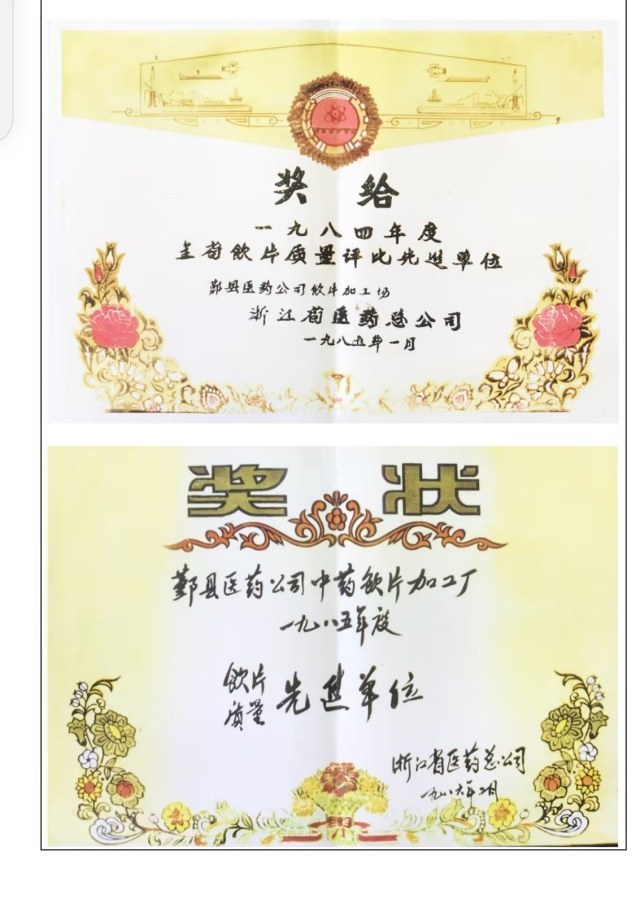 奖给
一九八四年度
全省饮片质量评比先进单位
鄞县医药公司饮片加工场
浙江省医药总公司
一九八五年一月
奖状
鄞县医药公司中药饮片加工厂
一九八五年度
饮片
质量 先进单位
浙江省医药总公司
一九八六年二月